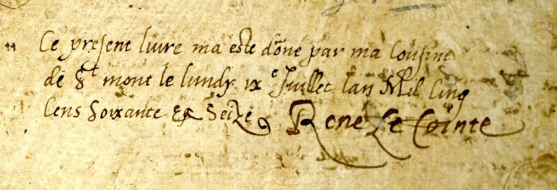 Ce present livre ma este doné par ma cousine
de St mont le lundy ix e Juillet lan Mil cinq
Cens soixante & Seize René Le Cointe